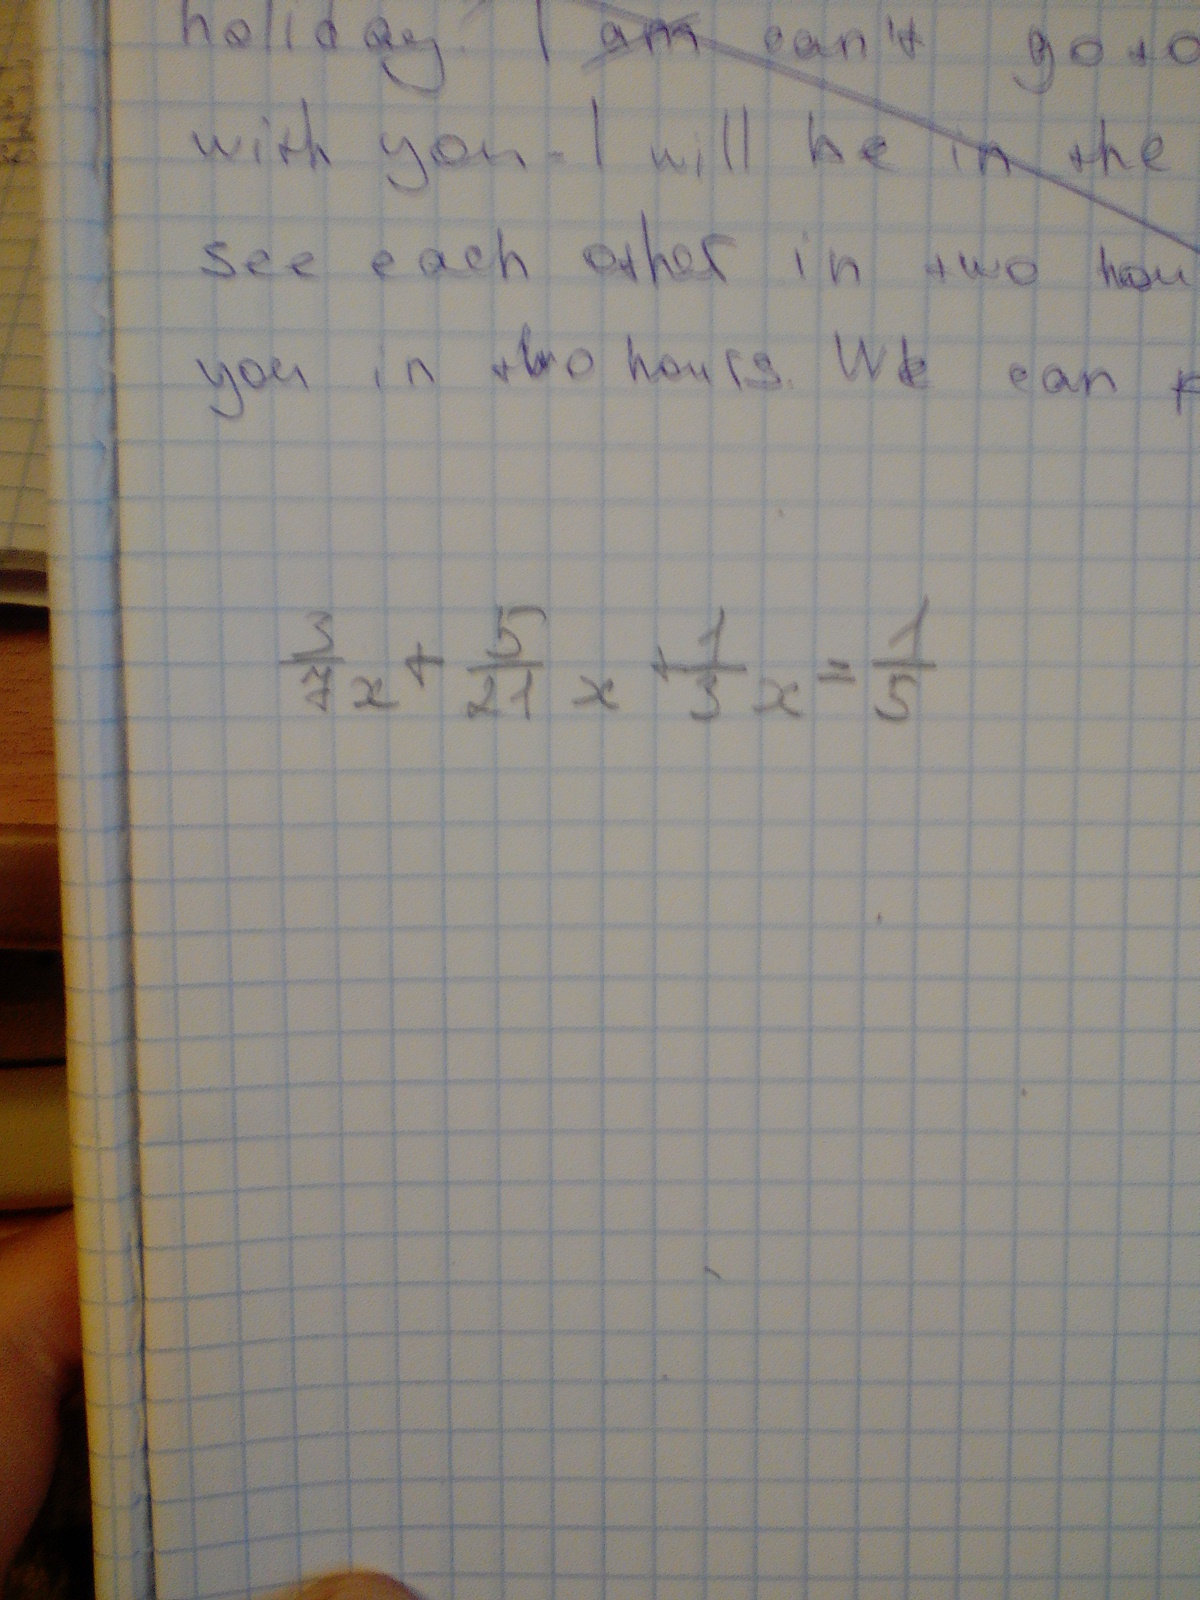 holiday. I am can't go to
with you. I will be in the
see each other in two hou
you in two hours. We can
3/7 x + 5/21 x + 1/3 x = 1/5